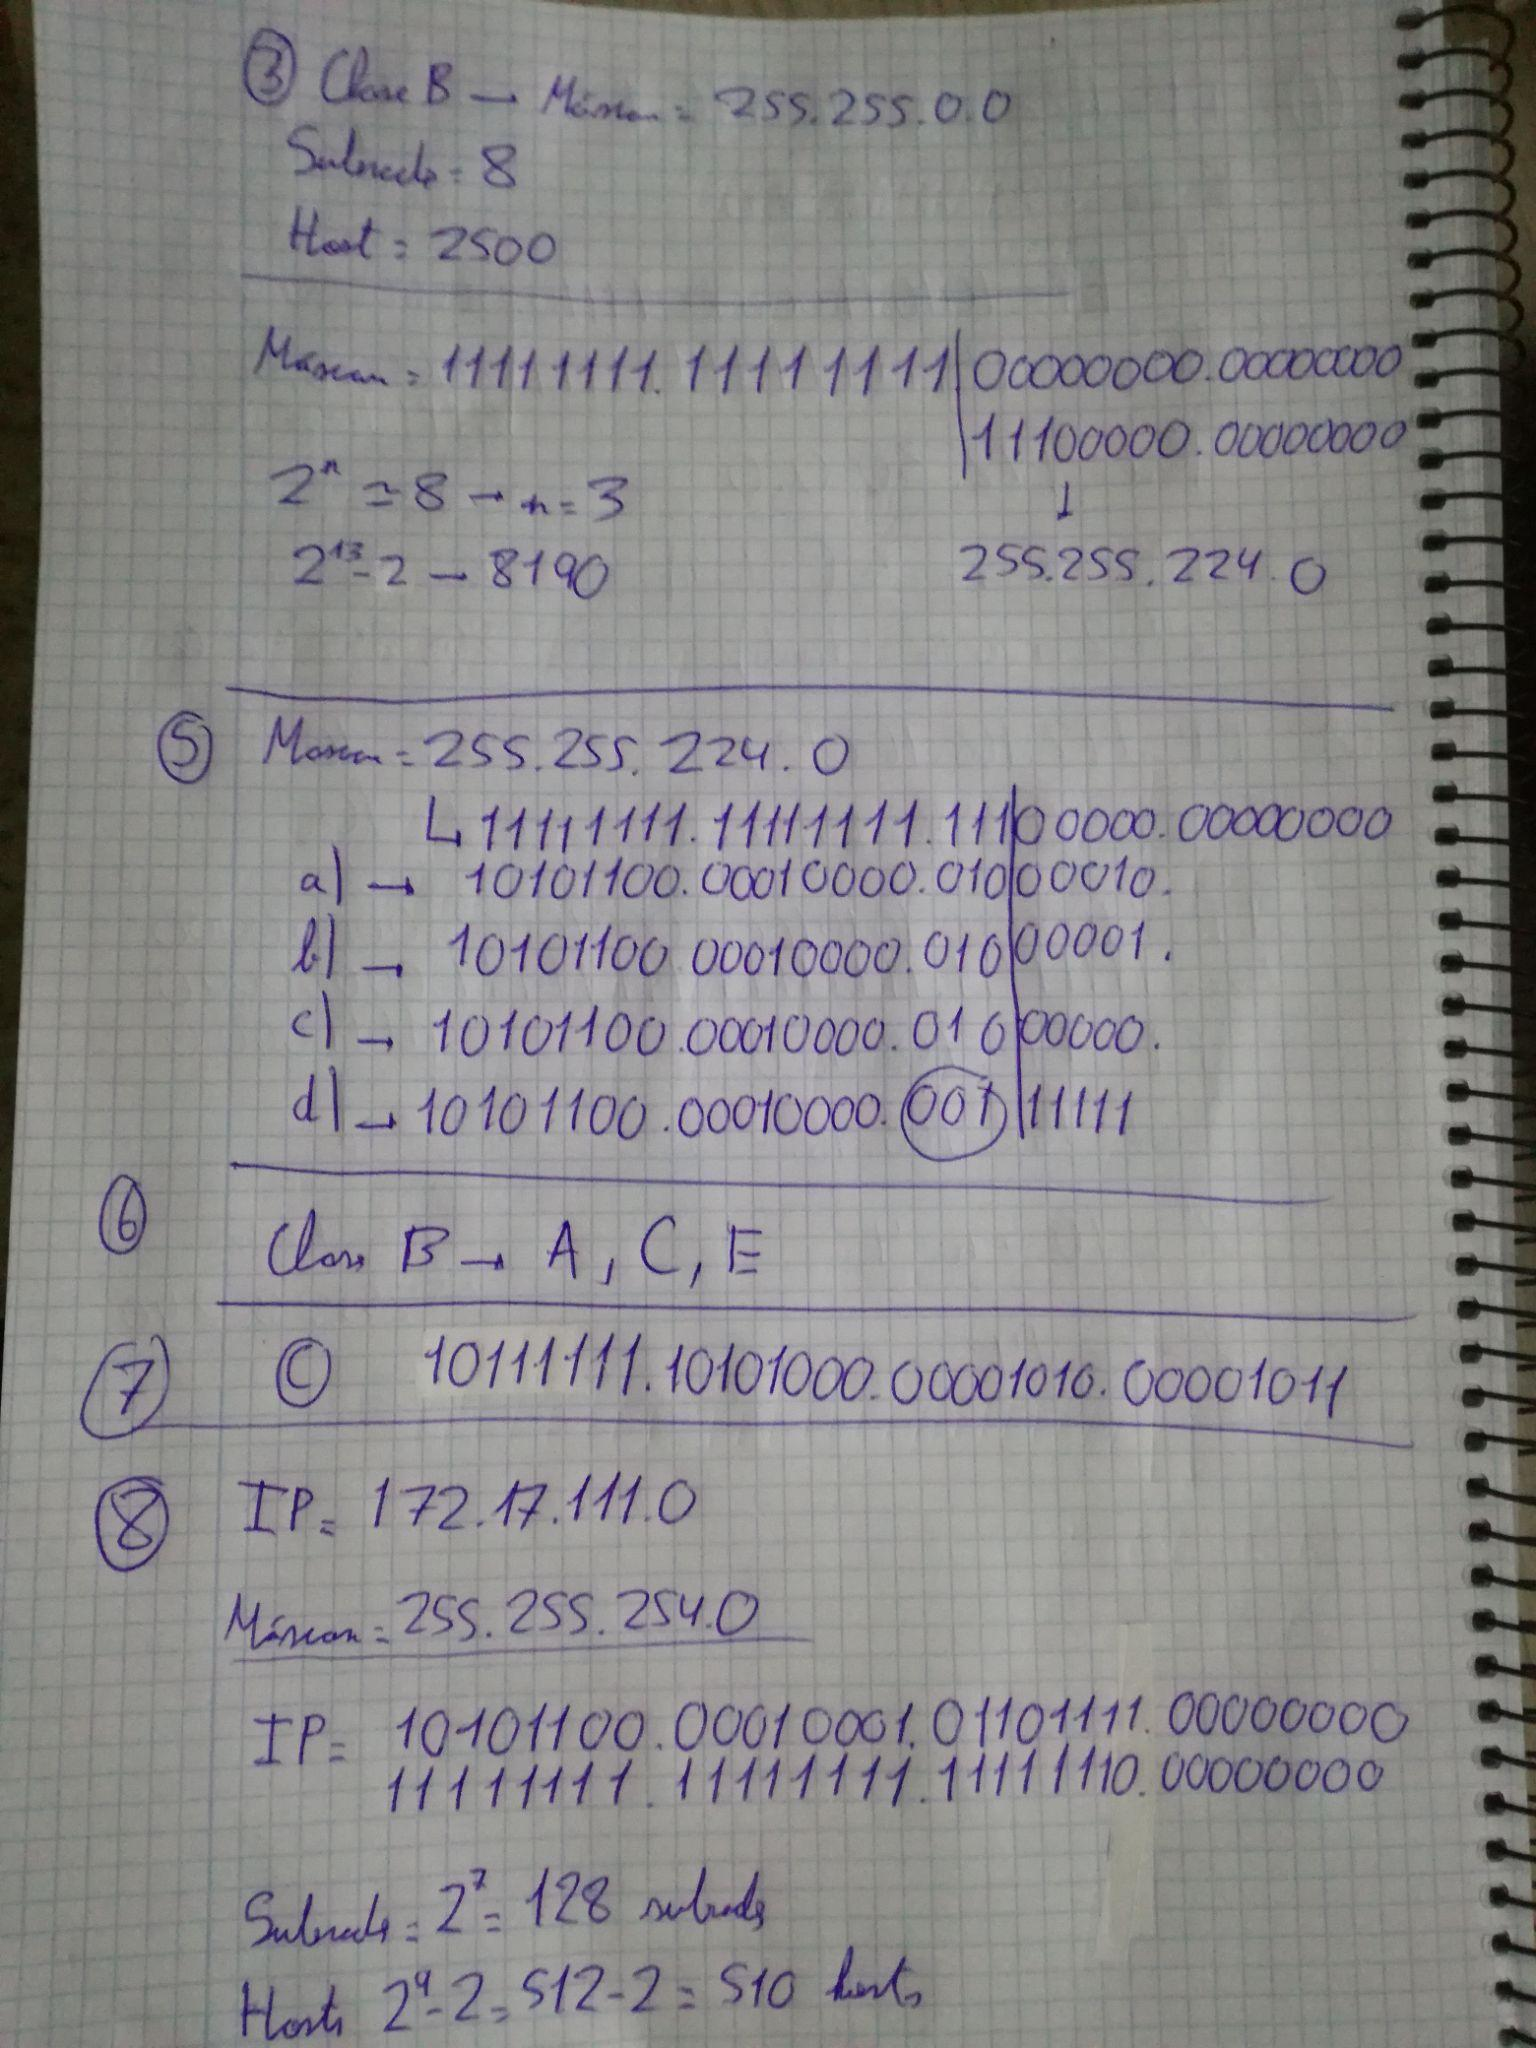 ③ Clase B → Máscara = 255.255.0.0
Subredes = 8
Host = 2500
Máscara = 11111111.11111111|00000000.00000000
|11100000.00000000
2ⁿ ≃ 8 → n = 3
↓
2¹³-2 → 8190
255.255.224.0
⑤ Mascara = 255.255.224.0
↳ 11111111.11111111.111|00000.00000000
a) → 10101100.00010000.010|00010.
b) → 10101100.00010000.010|00001.
c) → 10101100.00010000.010|00000.
d) → 10101100.00010000.001|11111
⑥ Clase B → A, C, E
⑦ Ⓒ 10111111.10101000.00001010.00001011
⑧ IP = 172.17.111.0
Máscara = 255.255.254.0
IP = 10101100.00010001.01101111.00000000
11111111.11111111.11111110.00000000
Subredes = 2⁷ = 128 subredes
Hosts 2⁹-2 = 512-2 = 510 hosts